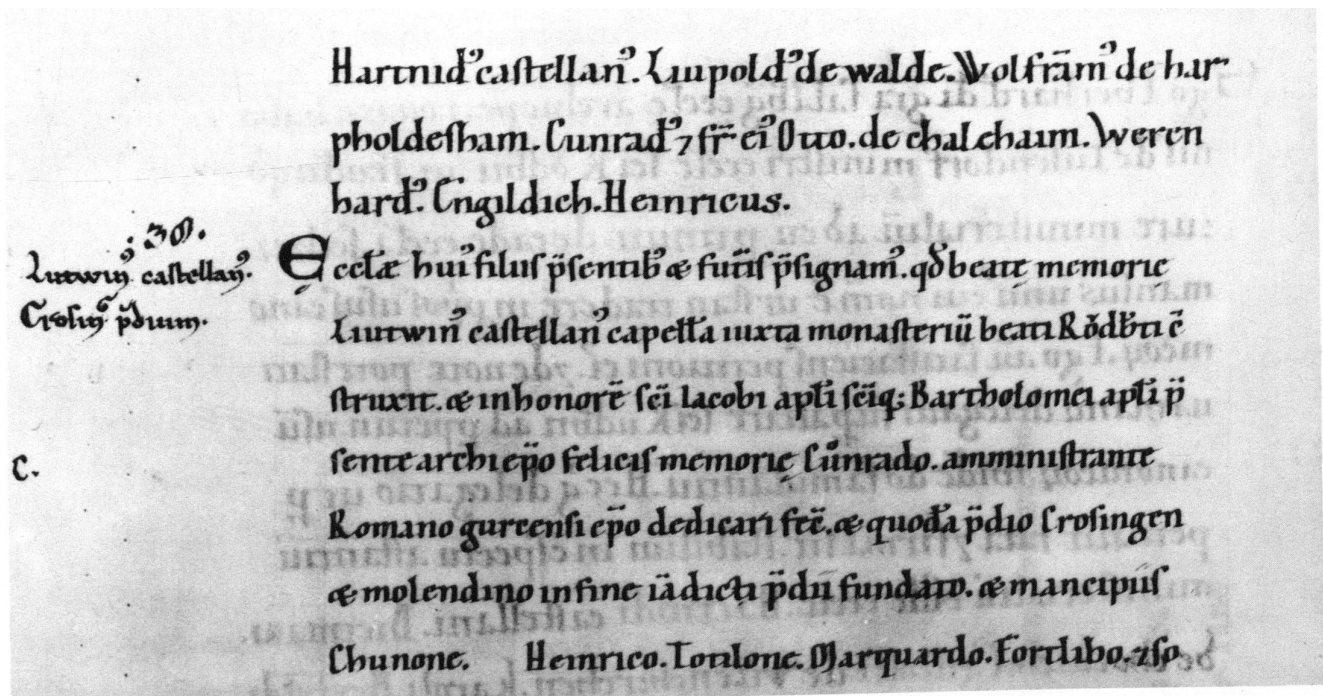 Hartnidꝰ castellanꝰ. Liupoldꝰ de walde. Wolfrām̄ꝰ de har
pholdesham. Cunradꝰ ⁊ fr̄ eiꝰ Otto. de chalchaim. Weren
hardꝰ. Engildich. Heinricus.
.30.
Lutwinꝰ castellanꝰ.
Crosing p̄dium.
Ecclæ huiꝰ filiis p̄sentibꝰ & futuris p̄signamꝰ. qđ beatę memorię
Liutwinꝰ castellanꝰ capellā iuxta monasteriū beati Rǒdb̄ti c̄
struxit. & in honorē sc̄i Iacobi apłi sc̄iq; Bartholomei apłi p̄
C.
sente archiep̄o felicis memorię Cůnrado. amministrante
Romano gurcensi ep̄o dedicari fec̄. & quodā p̄dio Crosingen
& molendino in fine iā dicti p̄dii fundato. & mancipiis
Chunone. Heinrico. Totilone. Marquardo. Fortlibo. ⁊ so